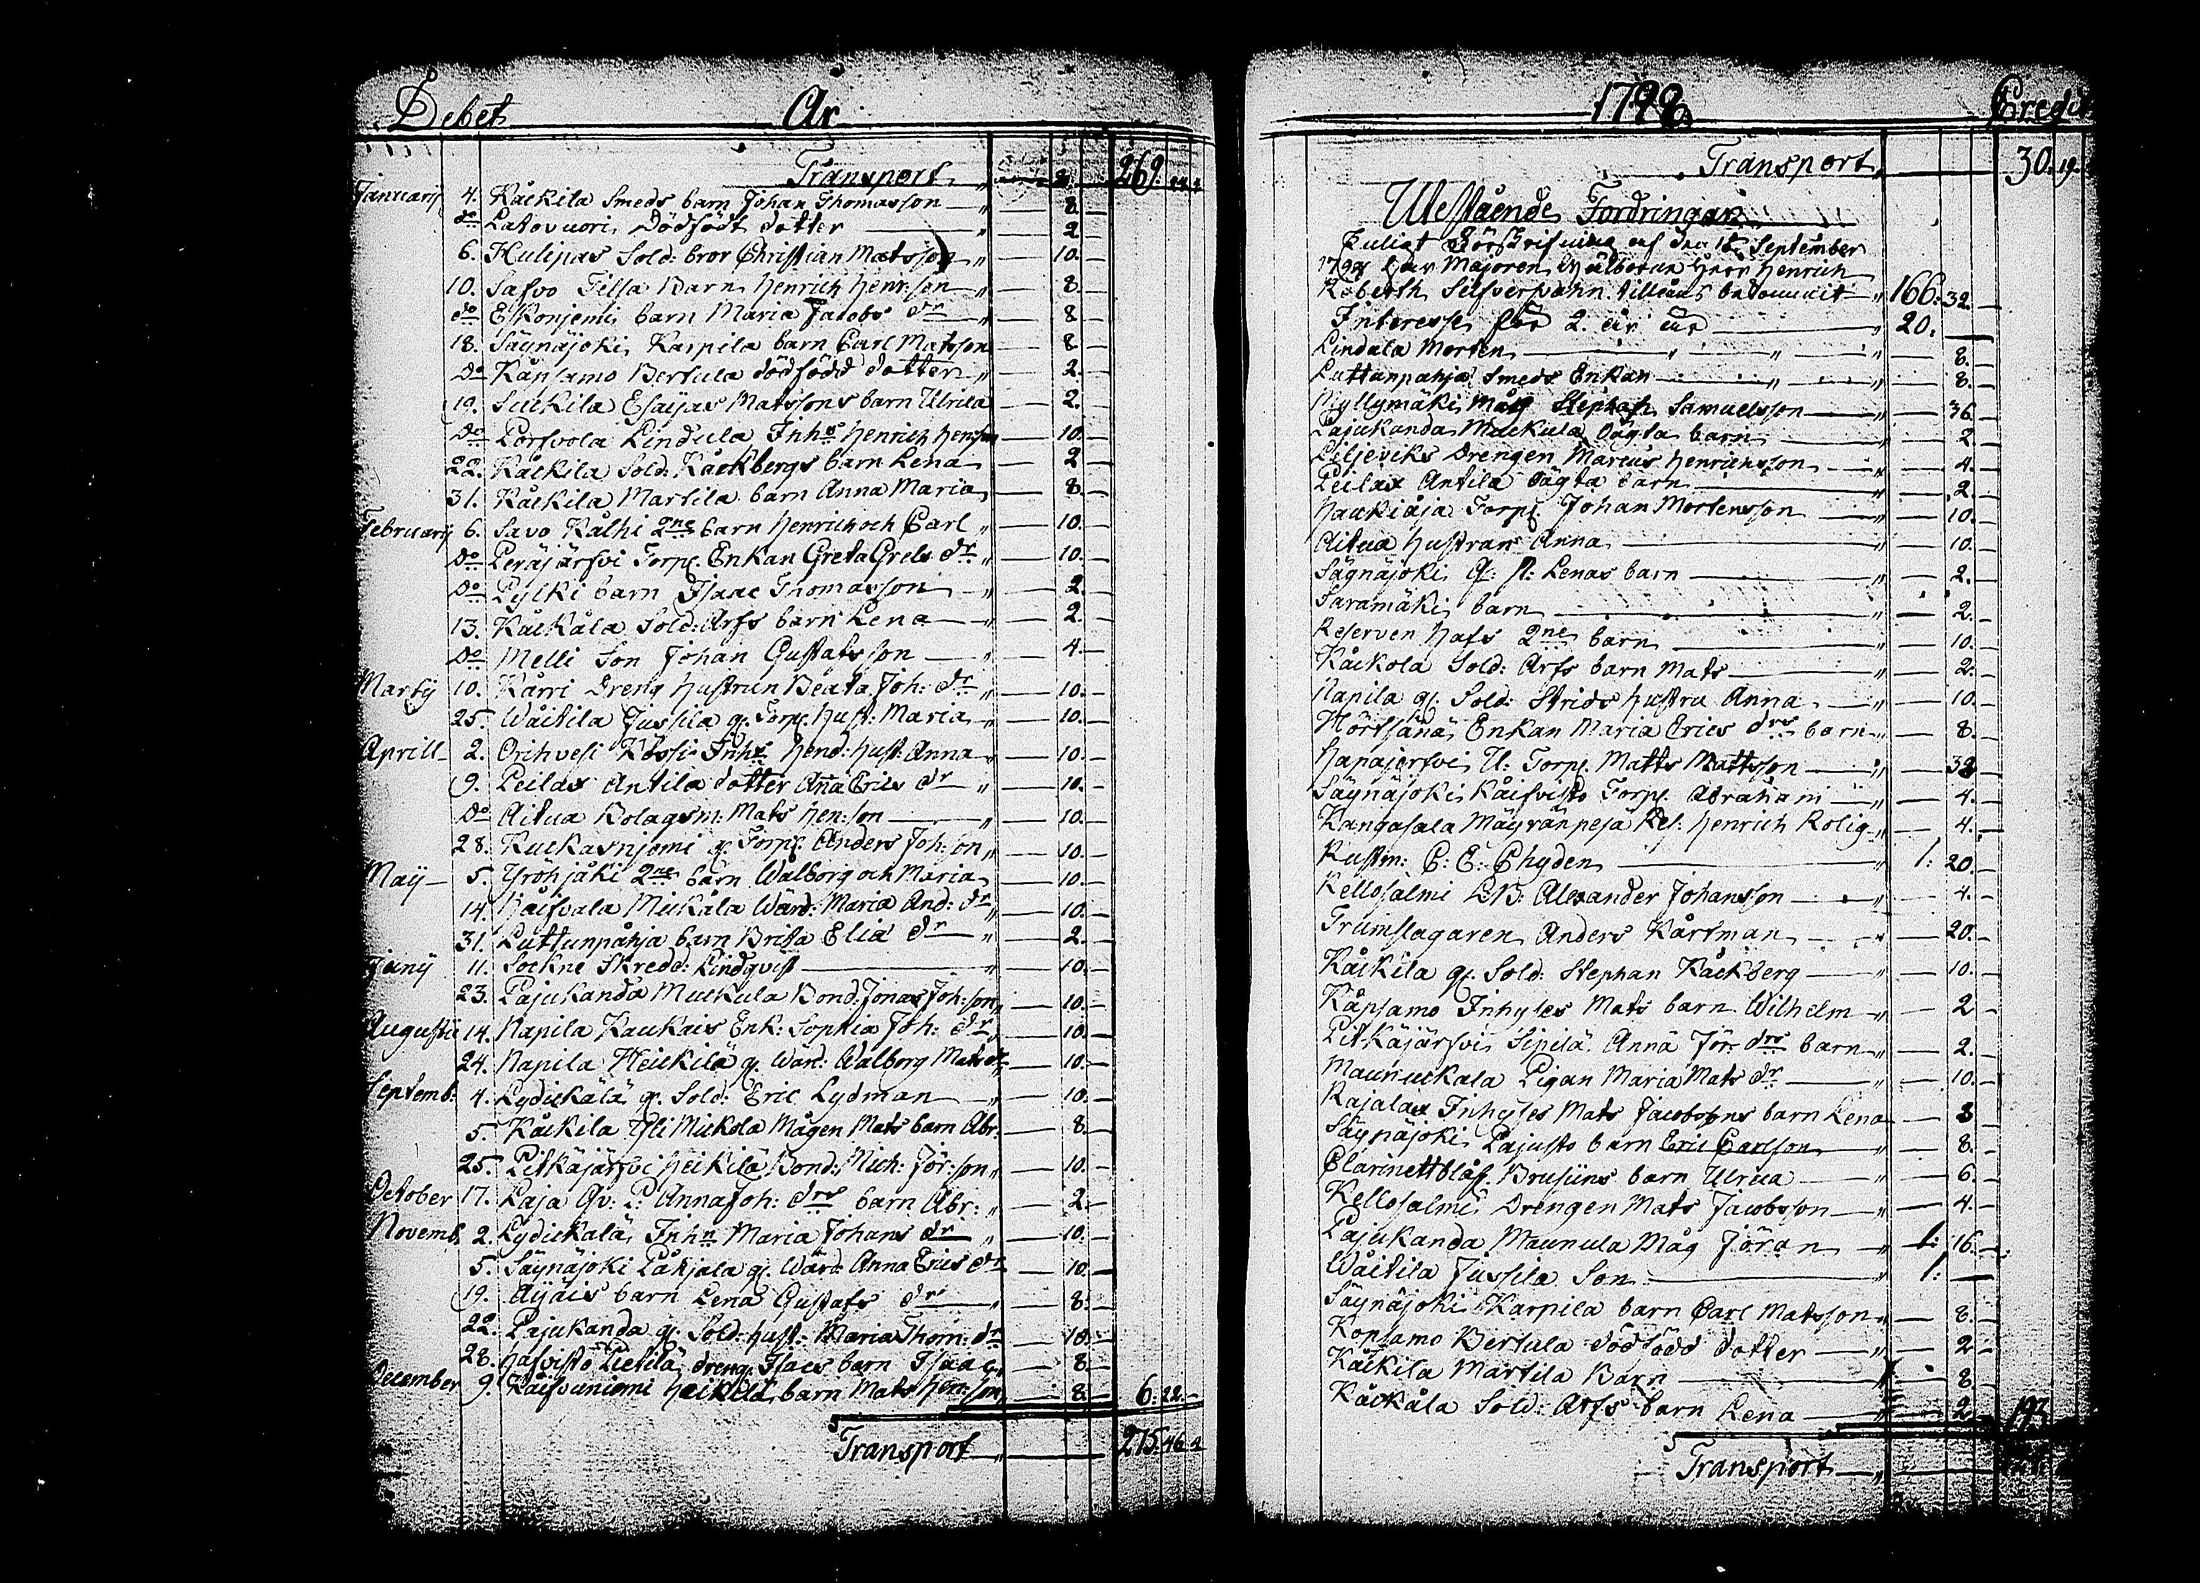 Debet År
Transport " 2. 269. 24. 2
Januarij 4. Kåckila Smeds barn Johan Thomasson " 8.
do Latovuori Dödfödt dotter " 2
6. Hulipas Sold: bror Christian Matsson " 10.
10. Safvo Tilsa Barn Henrich Henr:son " 8.
do Elkonjemi barn Maria Jacobs dr " 8
18. Säynäjoki Karpila barn Carl Matsson 8
Do Kåpsamo Bertula dödfödd dotter " 2.
19. Suckila Esaijas Matssons barn Ulrica 2.
Do Porsvola Lindula Inhs Henrich Hen:son 10.
22. Kåckila Sold: Kåckbergs barn Lena 2
31. Kåckila Martila barn Anna Maria 8.
Februarij 6. Savo Kålhi 2ne barn Henrich och Carl " 10.
Do Peräjärfvi Torp. Enkan Greta Grels dr " 10.
Do Pylki barn Isaac Thomasson " 2.
13. Kåckåla Sold: Arfs barn Lena " 2.
Do Melli Son Johan Gustafsson " 4.
Martij 10. Kårri Dreng Hustrun Beata Joh: dr " 10.
25. Wåitila Jussila g. Torp. Hust: Maria " 10.
Aprill 2. Orihvesi Kåssi Inhs Hend: Hust: Anna " 10.
9. Peilax Antila dotter Ana Erics dr " 10.
Do Aitua Bolagsm: Mats Hen:son " 10.
28. Kuckasnjemi g. Torp. Anders Joh:son " 10.
Maij 5. Yröhjåki 2ne barn Walborg och Maria 10.
14. Haisvala Mickåla Wärd: Maria And: dr " 10.
31. Luttunpåhja barn Brita Elia dr " 2.
Junij 11. Sockne Skredd: Lindqvist " 10.
23. Pajukanda Muckula Bond: Jonas Joh:son " 10.
Augustii 14. Napila Kaukais Enk: Sophia Joh: dr " 10.
24. Napila Heickilä g. Wärd: Walborg Mats dr 10.
Septemb: 4. Lydickälä g. Sold: Eric Lydman " 10.
5. Kåckila Yli Mickola Mågen Mats barn Abr: 8.
25. Pitkäjärfvi Heikilä Bond: Mich: Jör:son " 10.
October 17. Laja Qv: P: Anna Joh: drs barn Abr: " 2.
Novemb. 2. Lydickälä Inhn Maria Johans dr " 10.
5. Säynäjoki Påhjala g. Wärd: Anna Erics dr 10.
19. Äijäis barn Lena Gustafs dr " 8.
22. Pajukanda g. Sold: Hust: Maria Thom: dr 10.
28. Hafvisto Pietilä dreng Isacs barn Isaac 8.
December 9. Kåifvuniemi Heikilä barn Mats Hen:son 8. 6: 22.
Transport 275. 46. 2
1798 Credit
Transport 30. 19.
Utestående Fordringar
Enligt Förskrifning af den 15 September
179 har Majoren Wälborne Herr Henrich
Roberth Silfverspahn tillåns bekommit " 166: 32
Interesse för 2. år " 20:
Lindala Morten " 8.
Luttunpåhja Smeds Enkan " 8.
Myllymäki Måg Stephan Samuelsson 36
Pajukanda Muckula Oägta barn 2
Liljeviks Drengen Marcus Henrichsson 4.
Peilax Antila Oägta barn 2
Haukiåja Torp. Johan Mortensson " 10.
Aitua Hustrun Anna " 10.
Säynäjoki Q: P: Lenas barn 2.
Saramäki barn " 2.
Reserven Hafs 2ne barn " 10.
Kåckola Sold: Arfs barn Mats " 2.
Napila g. Sold: Strids Hustru Anna " 10.
Hörtsänä Enkan Maria Erics drs barn " 8.
Hapajerfvi U: Torp. Matts Mattsson " 32
Säynäjoki Kåifvisto Torp. Abraham " 4.
Kangasala Mäyränpeja Res: Henrich Rolig " 4.
Rustm: C: E: Chyden " 1: 20.
Kellosalmi LB: Alexander Johansson 4.
Trumslagaren Anders Kårtman 20.
Kåckila g. Sold: Stephan Kåckberg " 10.
Kåpsamo Inhyses Mats barn Wilhelm " 2
Pitkäjärfvi Sipilä Anna Jör: drs barn " 2.
Maunuckala Pigan Maria Mats dr " 10.
Rajalax Inhyses Mats Jacobsons barn Lena 3
Säynäjoki Pajusto barn Eric Carlson " 8.
Clarinettblås. Brusiins barn Ulrica " 6.
Kellosalmi Drengen Mats Jacobsson " 4.
Pajukanda Maunula Måg Jöran " 1: 16.
Wåitila Jussila Son " 1:
Säynäjoki Karpila barn Carl Matsson " 8.
Kopsamo Bertula dödfödd dotter " 2
Kåckila Martila Barn 8
Kåckåla Sold: Arfs barn Lena " 2 193
Transport "